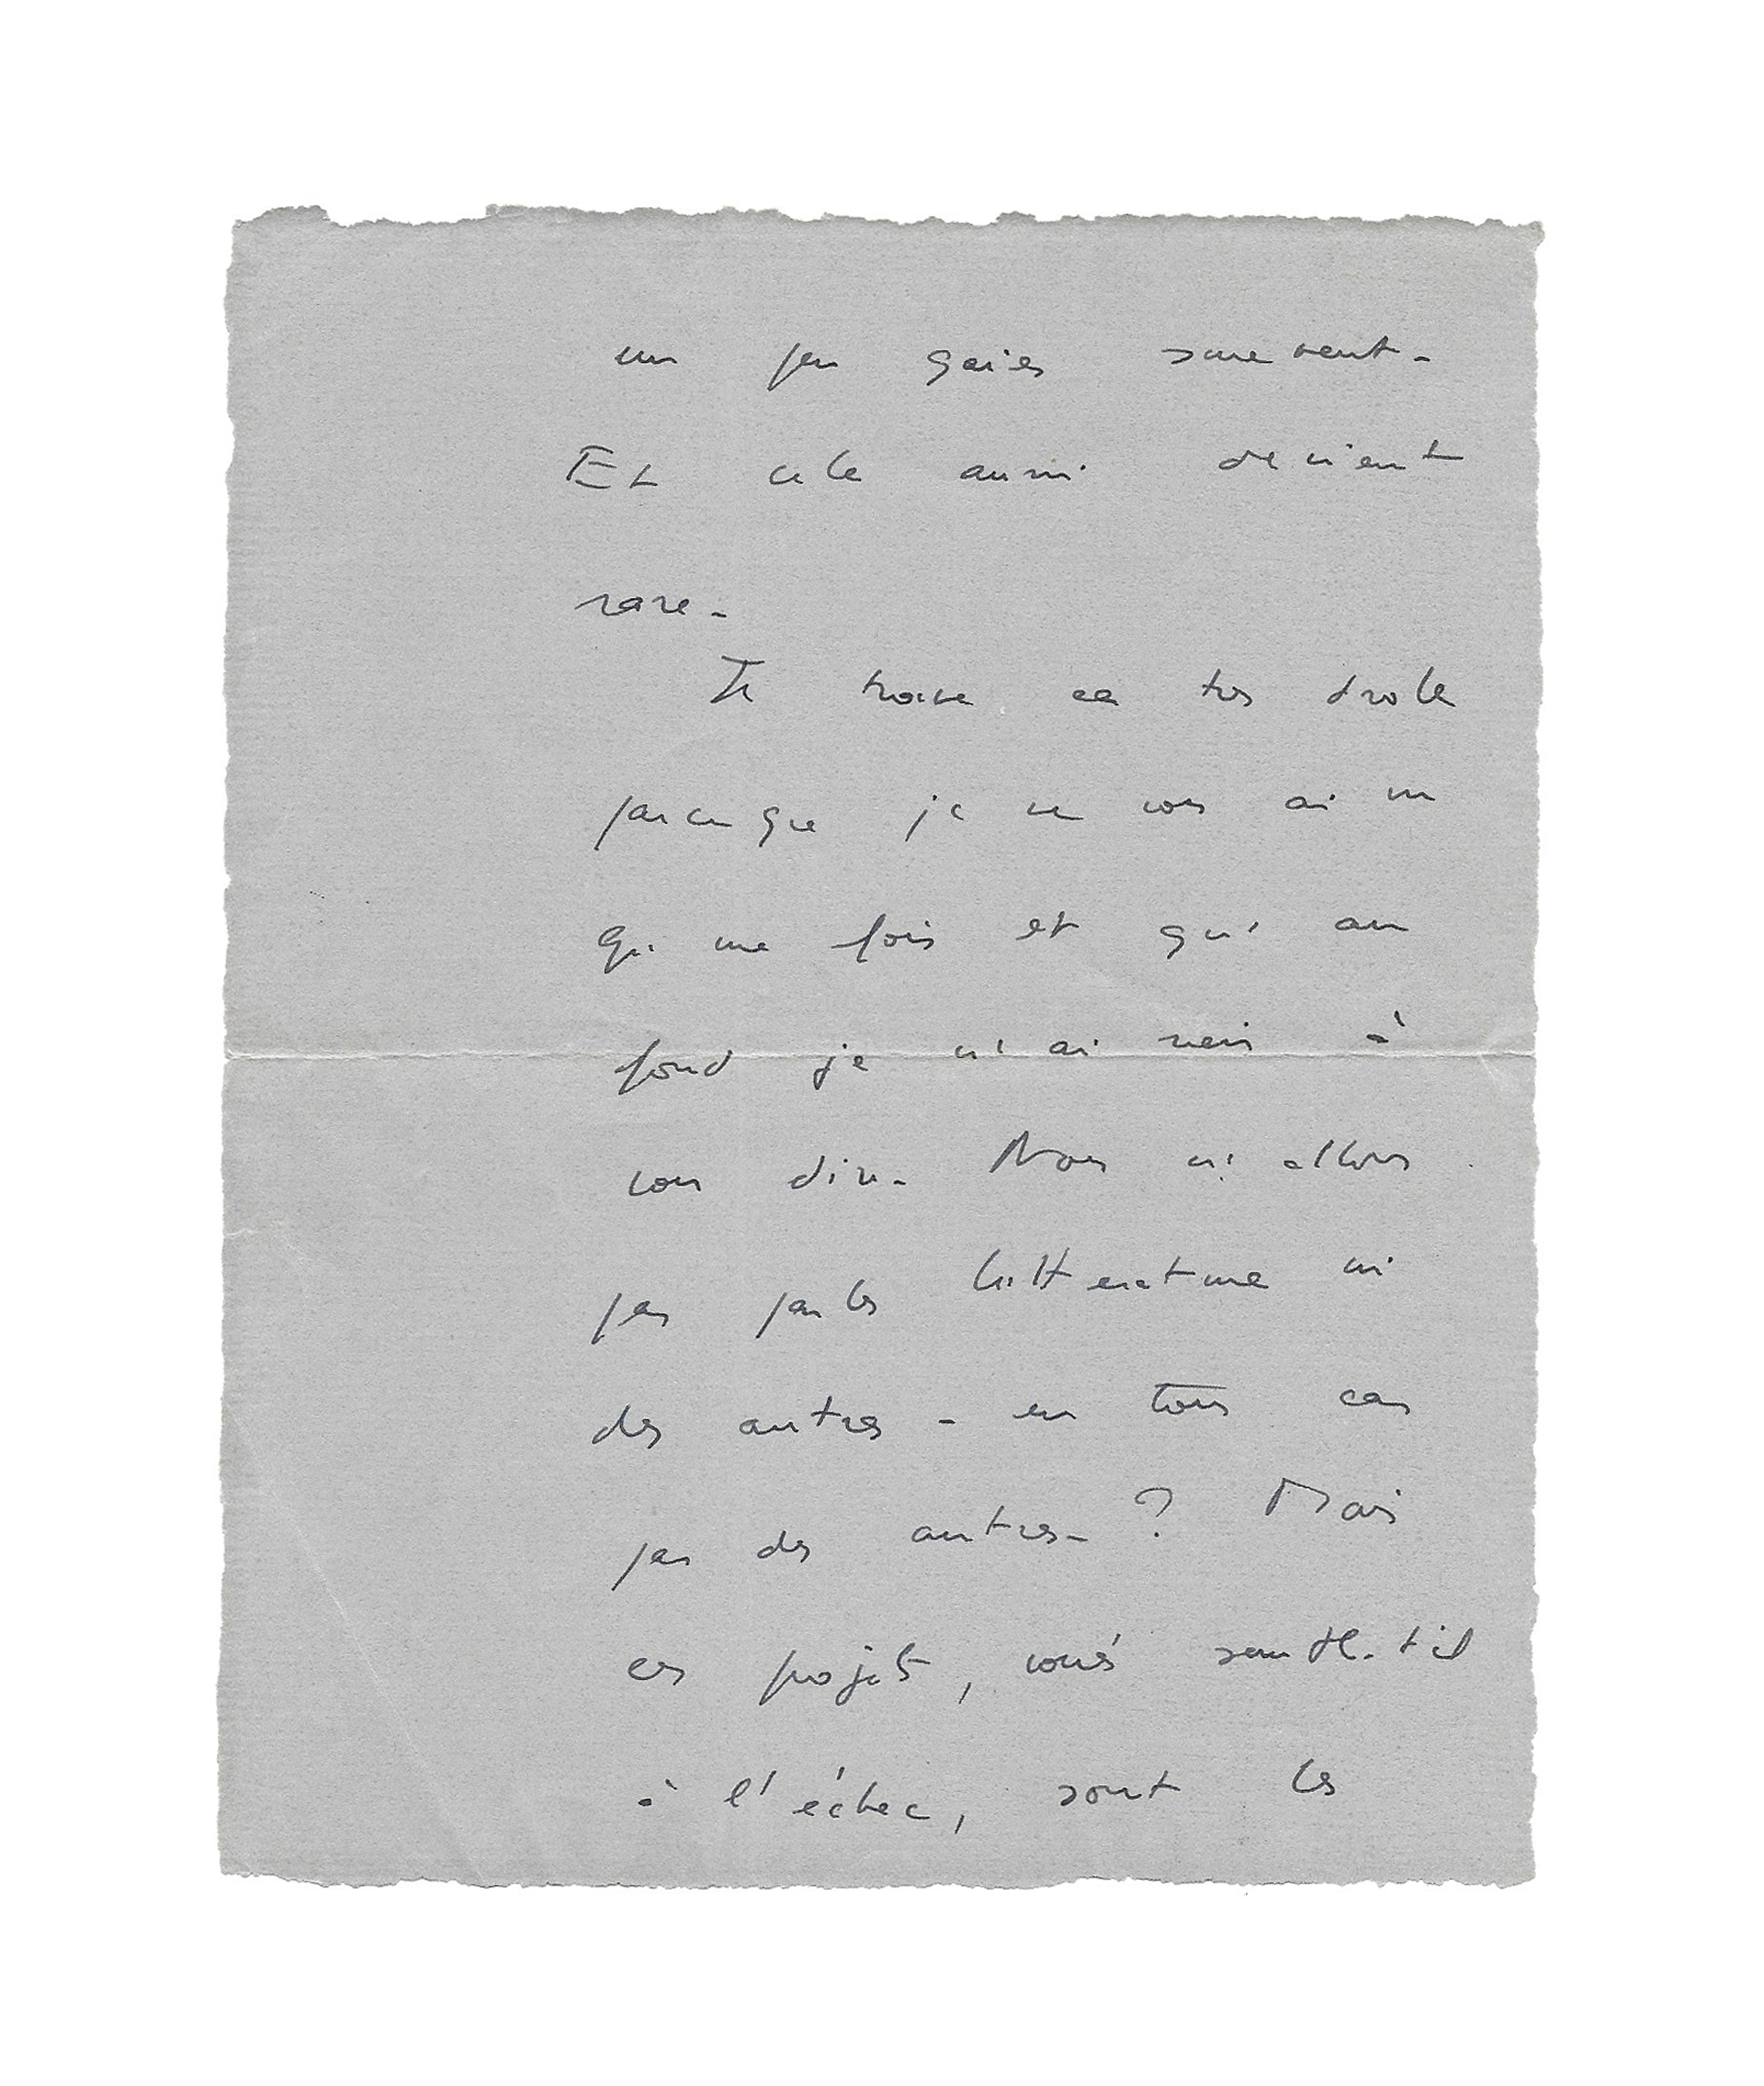 un peu gaies souvent.
Et cela aussi devient
rare.
Je trouve ca très drole
parce que je ne vous ai vu
qu'une fois et qu'au
fond je n'ai rien à
vous dire. Nous n'allons
pas parler littérature ni
des autres - en tous cas
pas des autres - ? Mais
ces projets, voués semble-t-il
à l'échec, sont les